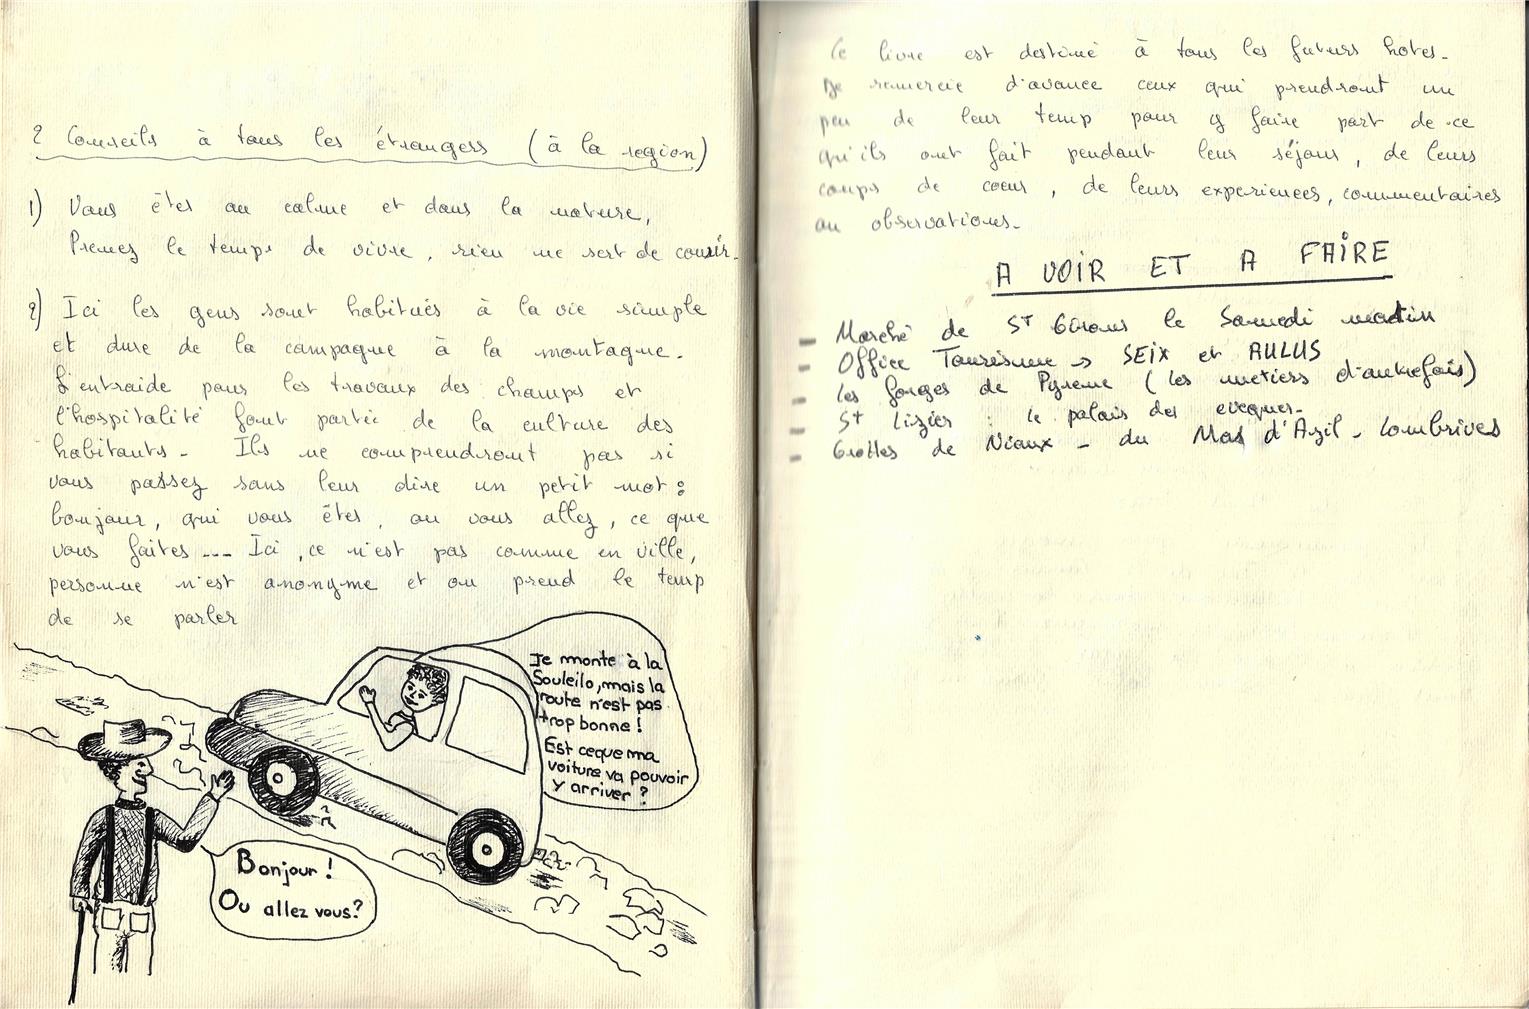 2 Conseils à tous les étrangers (à la region)
1) Vous êtes au calme et dans la nature,
Prenez le temps de vivre, rien ne sert de courir.
2) Ici les gens sont habitués à la vie simple
et dure de la campagne à la montagne.
L'entraide pour les travaux des champs et
l'hospitalité font partie de la culture des
habitants. Ils ne comprendront pas si
vous passez sans leur dire un petit mot :
bonjour, qui vous êtes, ou vous allez, ce que
vous faites --- Ici, ce n'est pas comme en ville,
personne n'est anonyme et on prend le temp
de se parler
Je monte à la
Souleilo, mais la
route n'est pas
trop bonne !
Est ce que ma
voiture va pouvoir
y arriver ?
Bonjour !
Ou allez vous ?
Ce livre est destiné à tous les futurs hotes.
Je remercie d'avance ceux qui prendront un
peu de leur temp pour y faire part de ce
qu'ils ont fait pendant leur séjour, de leurs
coups de coeur, de leurs experiences, commentaires
ou observations.
A VOIR ET A FAIRE
- Marché de St Girons le Samedi matin
- Office Tourisme → SEIX et AULUS
- les forges de Pyrene (les metiers d'autrefois)
- St Lizier : le palais des eveques.
- Grottes de Niaux - du Mas d'Azil - Lombrives